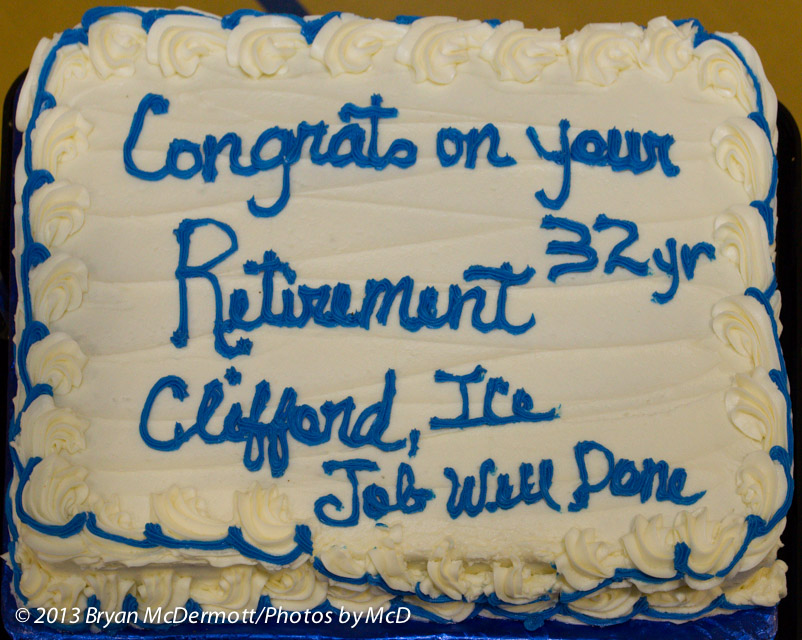 Congrats on your
Retirement 32yr
Clifford, Ice
Job Well Done
© 2013 Bryan McDermott/Photos byMcD